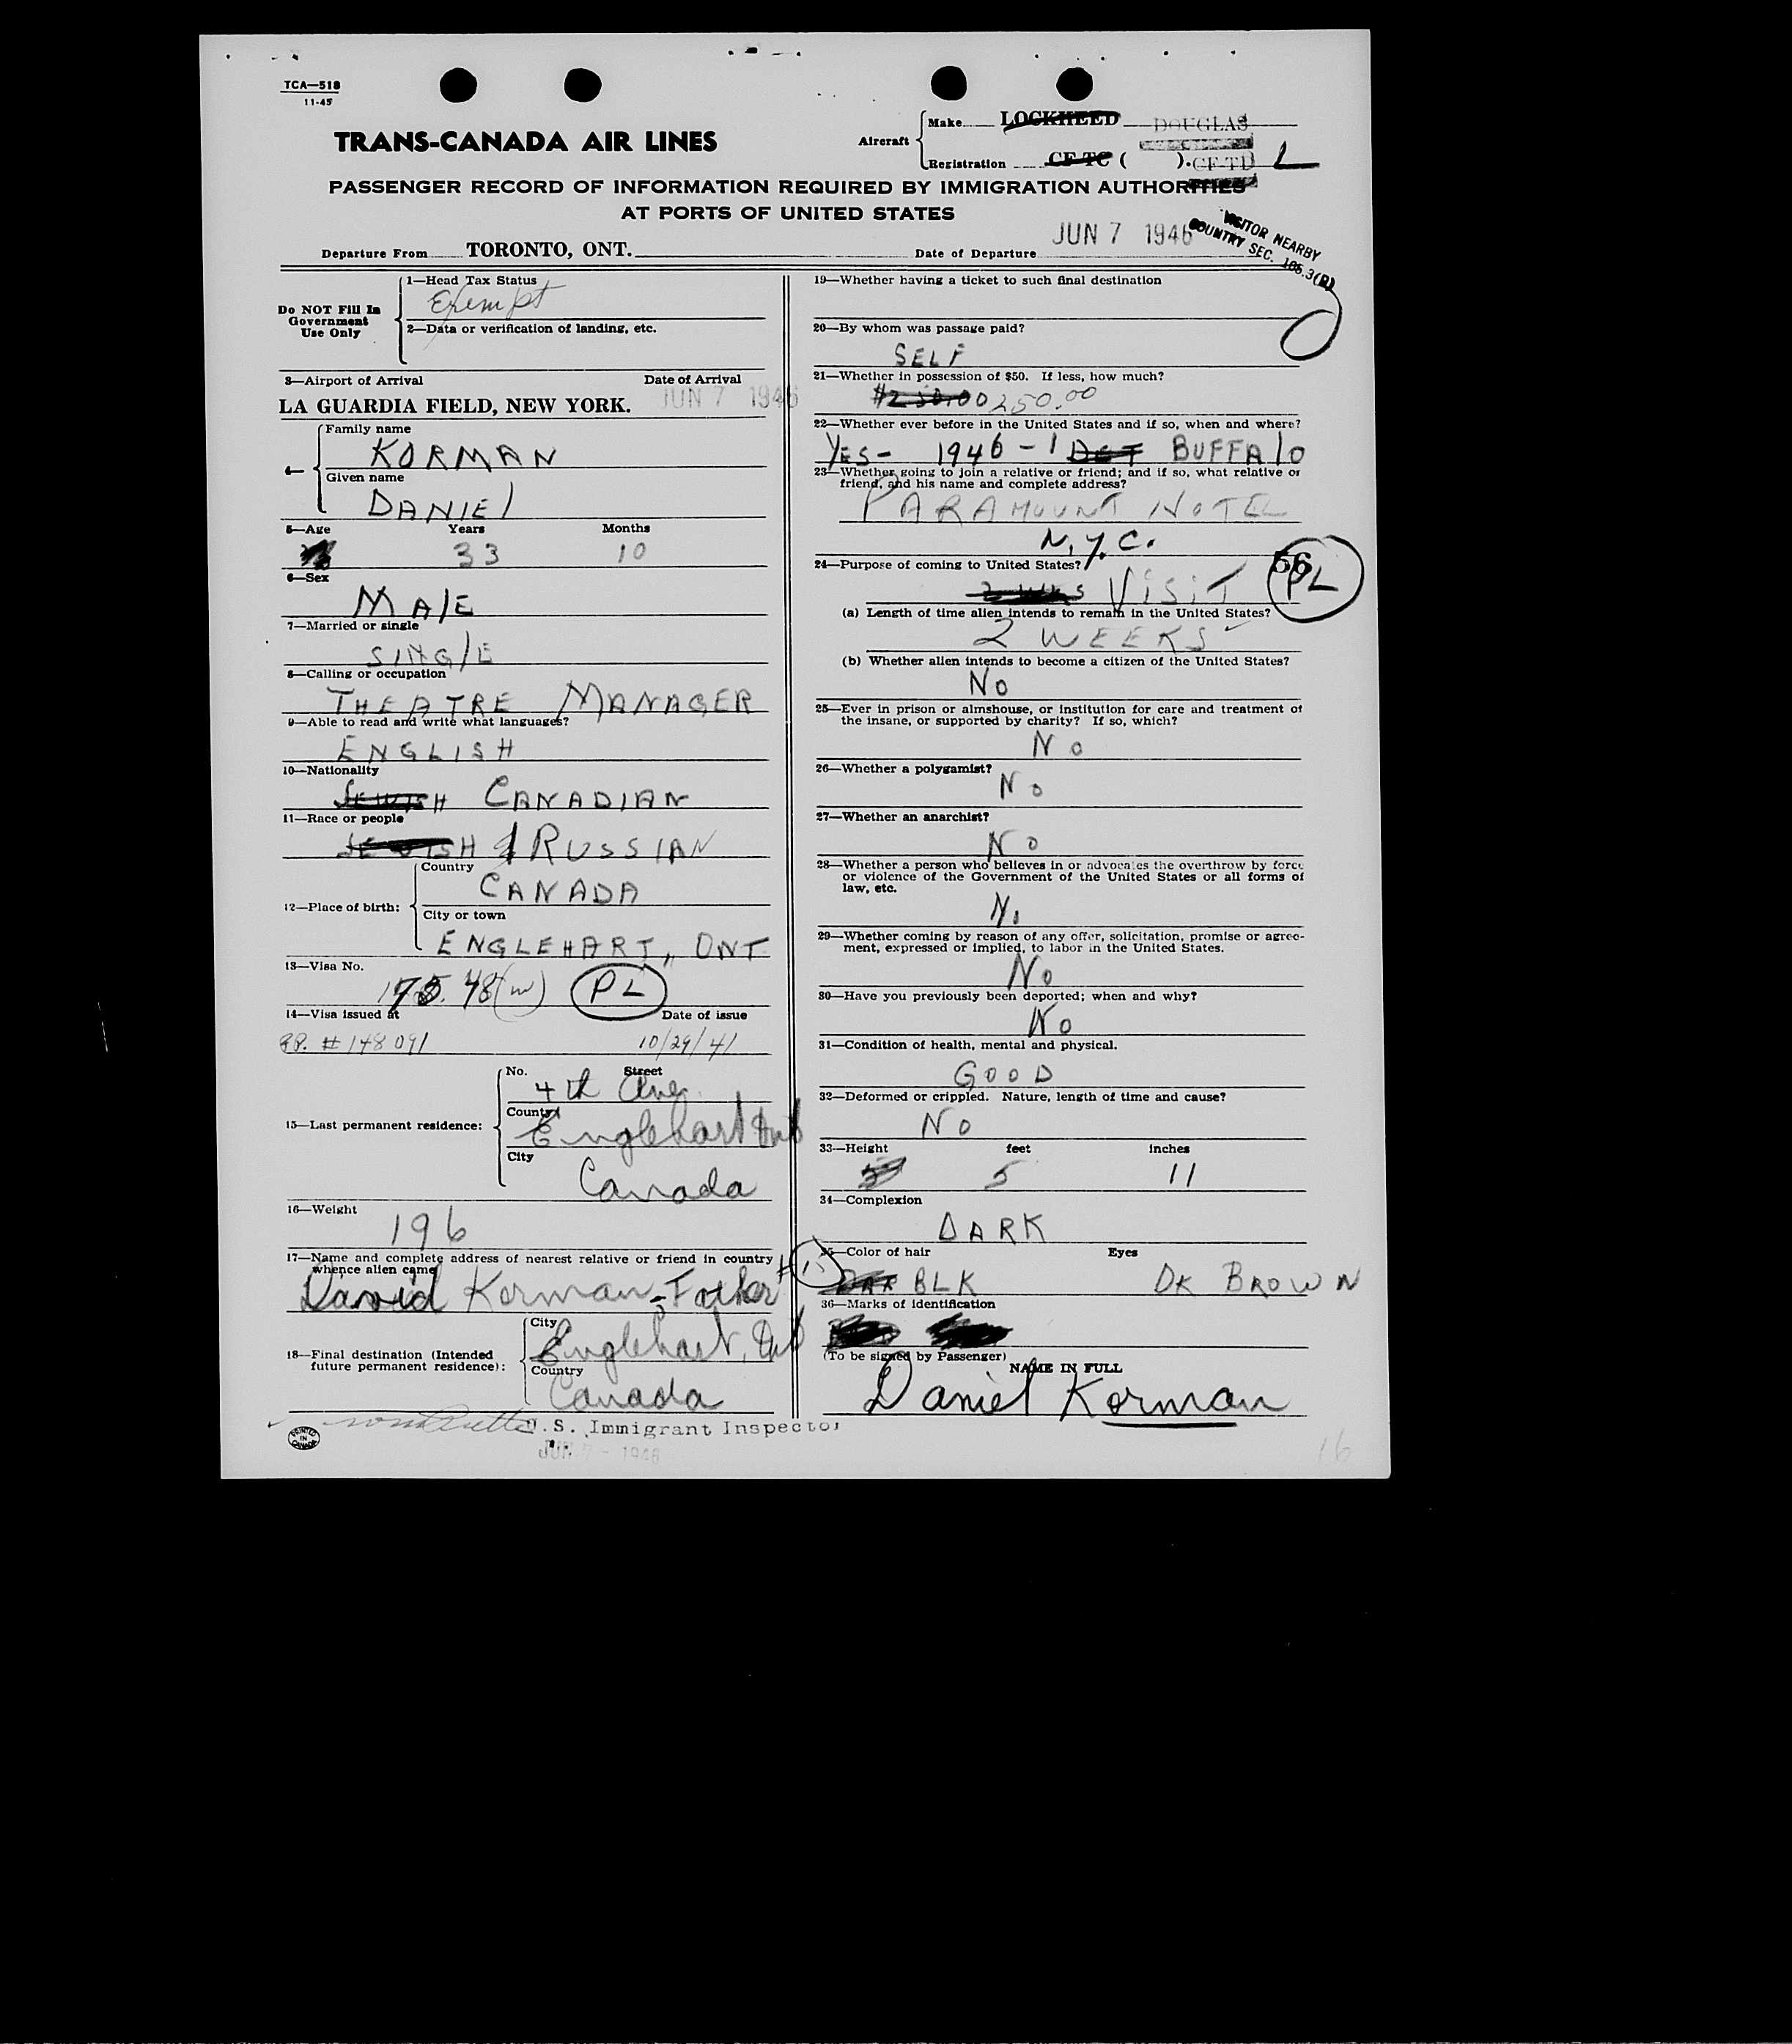 TCA—518
11-45
TRANS-CANADA AIR LINES
Aircraft
Make LOCKHEED DOUGLAS
Registration CF-TC ( ). CF-TD L
PASSENGER RECORD OF INFORMATION REQUIRED BY IMMIGRATION AUTHORITIES
AT PORTS OF UNITED STATES
VISITOR NEARBY
COUNTRY SEC.
Departure From TORONTO, ONT. Date of Departure JUN 7 1946
Do NOT Fill In
Government
Use Only
1—Head Tax Status
Exempt
2—Data or verification of landing, etc.
3—Airport of Arrival Date of Arrival
LA GUARDIA FIELD, NEW YORK. JUN 7 1946
4— Family name
KORMAN
Given name
DANIEL
5—Age Years Months
33 10
6—Sex
MALE
7—Married or single
SINGLE
8—Calling or occupation
THEATRE MANAGER
9—Able to read and write what languages?
ENGLISH
10—Nationality
JEWISH CANADIAN
11—Race or people
JEWISH RUSSIAN
12—Place of birth:
Country
CANADA
City or town
ENGLEHART, ONT
13—Visa No.
175.48 (w) PL
14—Visa issued at Date of issue
PP. # 148091 10/29/41
15—Last permanent residence:
No. Street
4th Ave
Country
Englehart Ont
City
Canada
16—Weight
196
17—Name and complete address of nearest relative or friend in country
whence alien came
David Korman - Father
18—Final destination (Intended
future permanent residence):
City
Englehart, Ont
Country
Canada
U.S. Immigrant Inspector
JUN 7 - 1946
PRINTED
IN
CANADA
19—Whether having a ticket to such final destination
20—By whom was passage paid?
SELF
21—Whether in possession of $50. If less, how much?
$250.00 250.00
22—Whether ever before in the United States and if so, when and where?
YES - 1946 - 1 DET BUFFALO
23—Whether going to join a relative or friend; and if so, what relative or
friend, and his name and complete address?
PARAMOUNT HOTEL
N.Y.C.
24—Purpose of coming to United States?
2 WKS VISIT
56
PL
(a) Length of time alien intends to remain in the United States?
2 WEEKS
(b) Whether alien intends to become a citizen of the United States?
No
25—Ever in prison or almshouse, or institution for care and treatment of
the insane, or supported by charity? If so, which?
No
26—Whether a polygamist?
No
27—Whether an anarchist?
No
28—Whether a person who believes in or advocates the overthrow by force
or violence of the Government of the United States or all forms of
law, etc.
No
29—Whether coming by reason of any offer, solicitation, promise or agree-
ment, expressed or implied, to labor in the United States.
No
30—Have you previously been deported; when and why?
No
31—Condition of health, mental and physical.
GOOD
32—Deformed or crippled. Nature, length of time and cause?
No
33—Height feet inches
5 11
34—Complexion
DARK
35—Color of hair Eyes
BLK DK BROWN
36—Marks of identification
(To be signed by Passenger)
NAME IN FULL
Daniel Korman
16